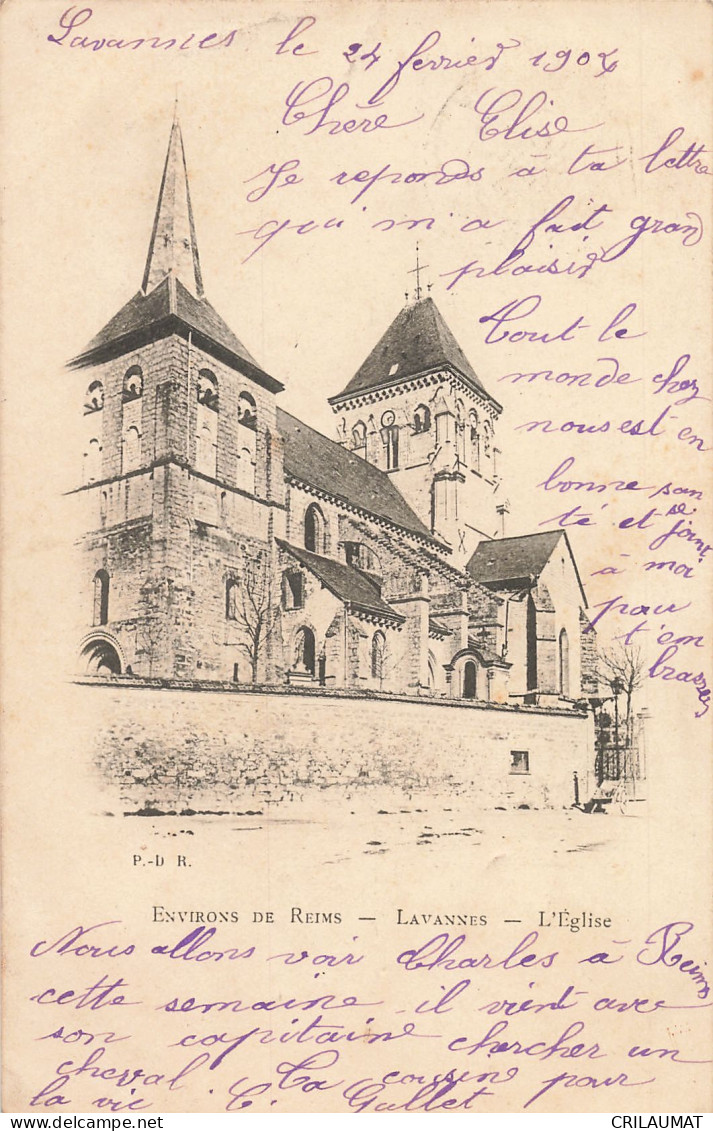 Lavannes le 24 fevrier 1904
Chère Elise
Je reponds à ta lettre
qui m'a fait grand
plaisir
Tout le
monde chez
nous est en
bonne san
té et se joint
à moi
pour
t'em
brasser
P.-D R.
ENVIRONS DE REIMS — LAVANNES — L'Église
Nous allons voir Charles à Reims
cette semaine il vient avec
son capitaine chercher un
cheval Ta cousine pour
la vie C. Gallet
CRILAUMAT